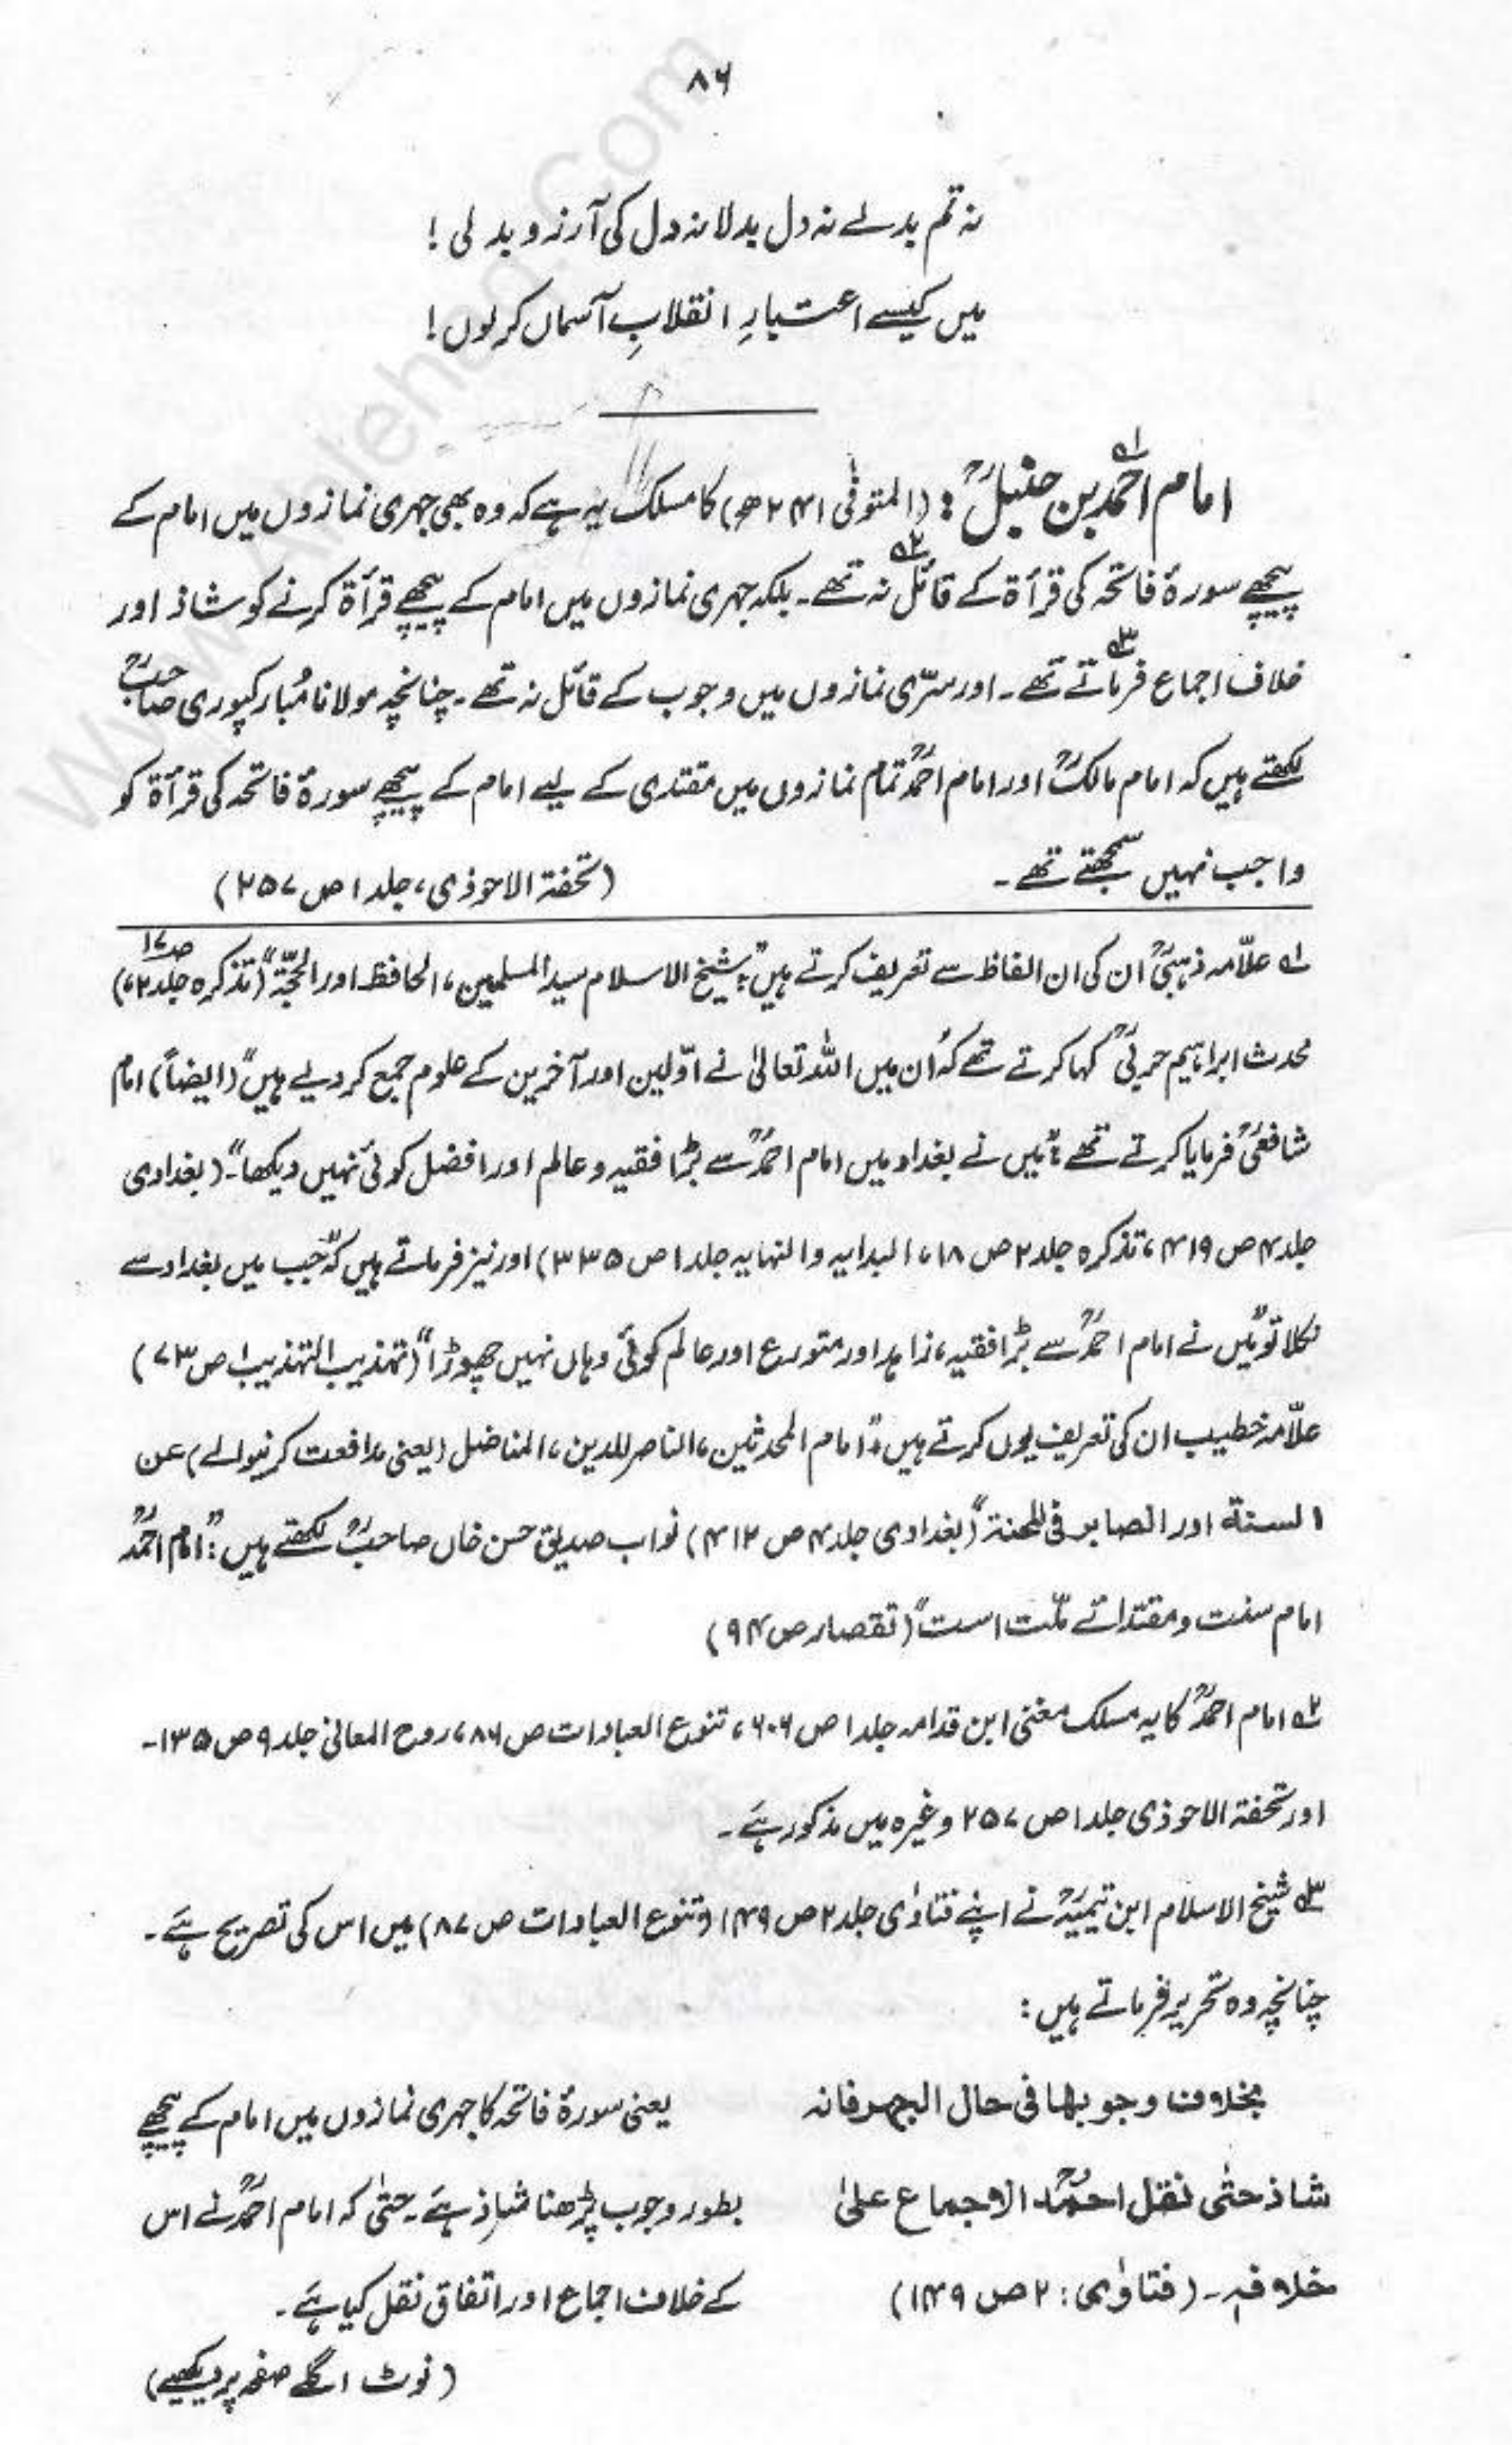 ۸۶
نہ تم بدلے نہ دل بدلا نہ دل کی آرزو بدلی !
میں کیسے اعتبارِ انقلابِ آسماں کرلوں !
امام احمدؒ بن حنبلؒ : (المتوفٰی ۲۴۱ھ) کا مسلک یہ ہے کہ وہ بھی جہری نمازوں میں امام کے
پیچھے سورۂ فاتحہ کی قرأۃ کے قائل نہ تھے۔ بلکہ جہری نمازوں میں امام کے پیچھے قرأۃ کرنے کو شاذ اور
خلاف اجماع فرماتے تھے۔ اور سرّی نمازوں میں وجوب کے قائل نہ تھے۔ چنانچہ مولانا مُبارکپوری صاحبؒ
لکھتے ہیں کہ امام مالکؒ اور امام احمدؒ تمام نمازوں میں مقتدی کے لیے امام کے پیچھے سورۂ فاتحہ کی قرأۃ کو
واجب نہیں سمجھتے تھے۔ (تحفۃ الاحوذی، جلد ۱ ص ۲۵۷)
۱؎ علّامہ ذہبیؒ ان کی ان الفاظ سے تعریف کرتے ہیں: "شیخ الاسلام سید المسلمین، الحافظ اور الحجّۃ" (تذکرہ جلد ۲، ص۱۷)
محدث ابراہیم حربیؒ کہا کرتے تھے کہ "اُن میں اللہ تعالیٰ نے اوّلین اور آخرین کے علوم جمع کر دیے ہیں" (ایضاً) امام
شافعیؒ فرمایا کرتے تھے: "میں نے بغداد میں امام احمدؒ سے بڑا فقیہ و عالم اور افضل کوئی نہیں دیکھا"۔ (بغدادی
جلد ۴ ص ۴۱۹، تذکرہ جلد ۲ ص ۱۸، البدایہ والنہایہ جلد ۱ ص ۳۳۵) اور نیز فرماتے ہیں کہ "جب میں بغداد سے
نکلا تو میں نے امام احمدؒ سے بڑا فقیہ، زاہد اور متورع اور عالم کوئی وہاں نہیں چھوڑا" (تہذیب التہذیب ۱ ص ۷۳)
علّامہ خطیب ان کی تعریف یوں کرتے ہیں: "امام المحدثین، الناصر للدین، المناضل (یعنی مدافعت کرنیوالے) عن
السنۃ اور الصابر فی المحنۃ" (بغدادی جلد ۴ ص ۴۱۲) نواب صدیق حسن خاں صاحبؒ لکھتے ہیں: "امام احمدؒ
امام سنت و مقتدائے ملّت است" (تقصار ص ۹۴)
۲؎ امام احمدؒ کا یہ مسلک مغنی ابن قدامہ جلد ۱ ص ۶۰۶، تنوع العبادات ص ۸۶، روح المعانی جلد ۹ ص ۱۳۵۔
اور تحفۃ الاحوذی جلد ۱ ص ۲۵۷ وغیرہ میں مذکور ہے۔
۳؎ شیخ الاسلام ابن تیمیہؒ نے اپنے فتاوٰی جلد ۲ ص ۱۴۹ (و تنوع العبادات ص ۸۷) میں اس کی تصریح ہے۔
چنانچہ وہ تحریر فرماتے ہیں:
بخلاف وجوبہا فی حال الجہر فانہ
شاذ حتٰی نقل احمدؒ الاجماع علیٰ
خلافہ۔ (فتاوٰی: ۲ ص ۱۴۹)
یعنی سورۂ فاتحہ کا جہری نمازوں میں امام کے پیچھے
بطور وجوب پڑھنا شاذ ہے۔ حتٰی کہ امام احمدؒ نے اس
کے خلاف اجماع اور اتفاق نقل کیا ہے۔
(نوٹ اگلے صفحہ پر دیکھیے)
www.Ahlehaq.Com